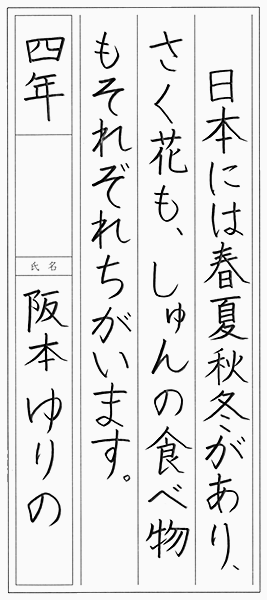 日本には春夏秋冬があり、
さく花も、しゅんの食べ物
もそれぞれちがいます。
四年
氏名
阪本ゆりの